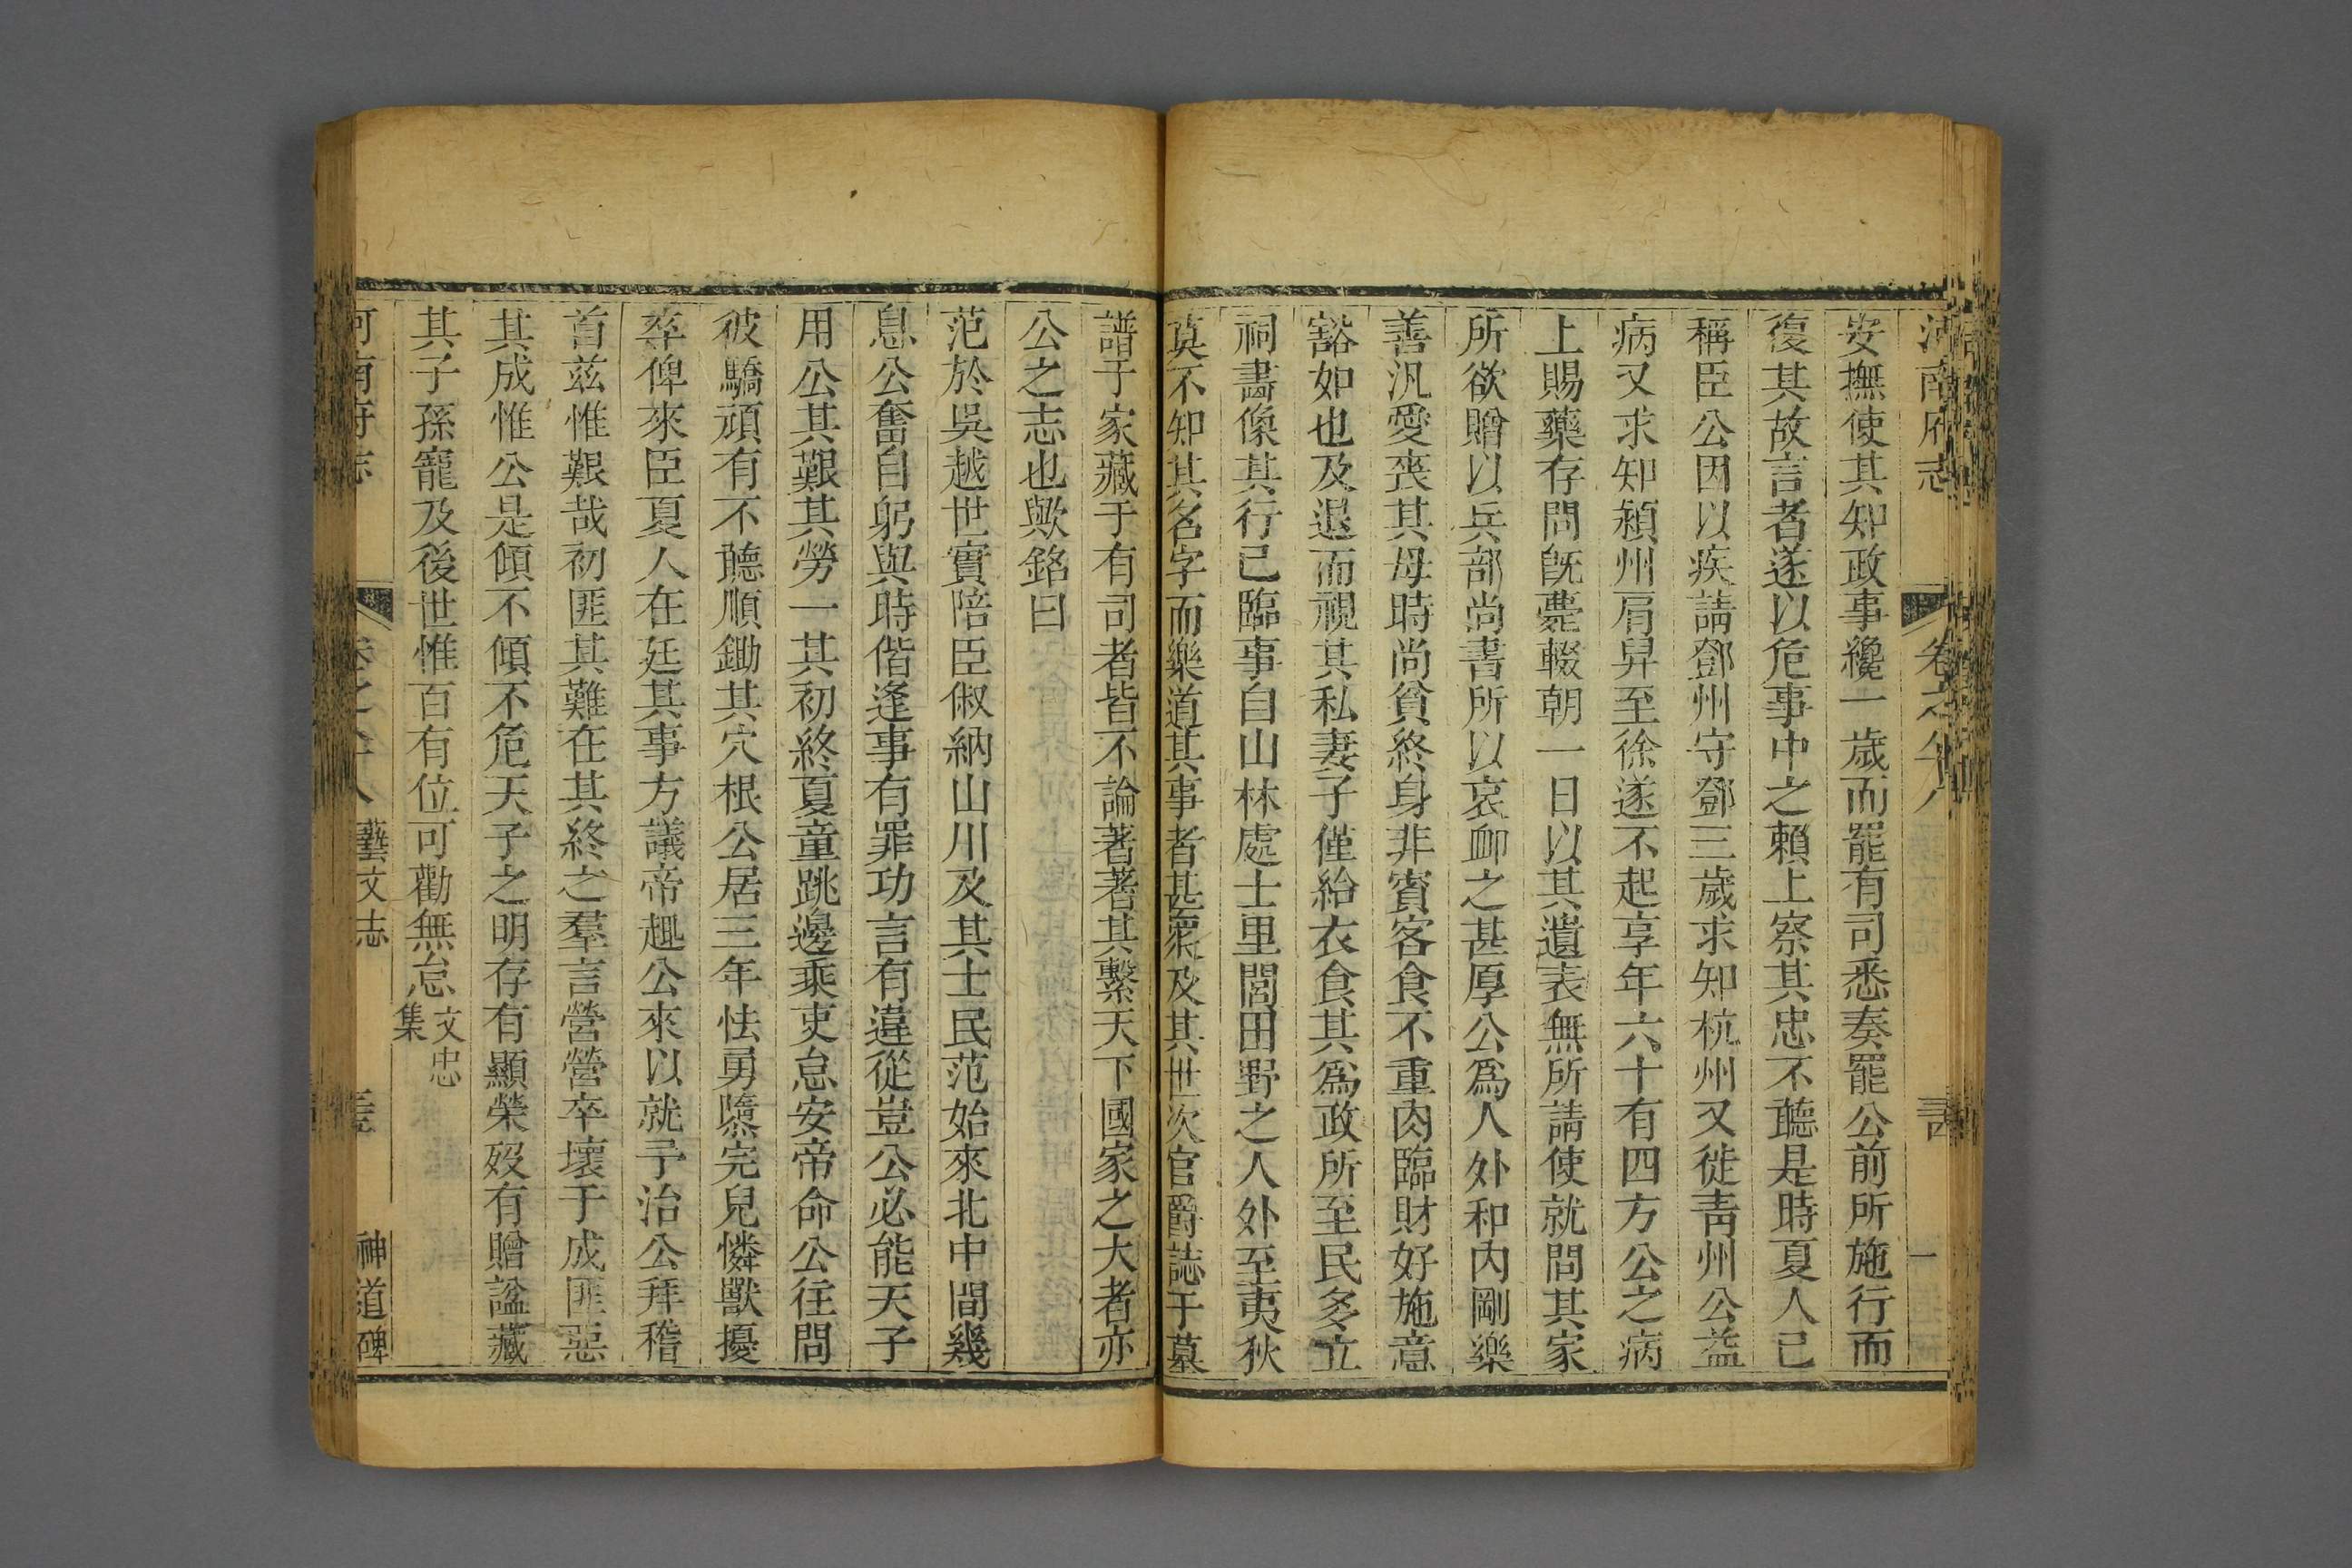 河南府志 卷之八
安撫使其知政事纔一歲而罷有司悉奏罷公前所施行而
復其故言者遂以危事中之賴上察其忠不聽是時夏人已
稱臣公因以疾請鄧州守鄧三歲求知杭州又徙靑州公益
病又求知潁州肩舁至徐遂不起享年六十有四方公之病
上賜藥存問旣薨輟朝一日以其遺表無所請使就問其家
所欲贈以兵部尚書所以哀卹之甚厚公爲人外和內剛樂
善汎愛喪其母時尚貧終身非賓客食不重肉臨財好施意
豁如也及退而視其私妻子僅給衣食其爲政所至民多立
祠畵像其行己臨事自山林處士里閭田野之人外至夷狄
莫不知其名字而樂道其事者甚衆及其世次官爵誌于墓
譜于家藏于有司者皆不論著著其繫天下國家之大者亦
公之志也歟銘曰
范於吳越世實陪臣俶納山川及其士民范始來北中間幾
息公奮自躬與時偕逢事有罪功言有違從豈公必能天子
用公其艱其勞一其初終夏童跳邊乘吏怠安帝命公往問
彼驕頑有不聽順鋤其穴根公居三年怯勇隳完兒憐獸擾
卒俾來臣夏人在廷其事方議帝趣公來以就予治公拜稽
首玆惟艱哉初匪其難在其終之羣言營營卒壞于成匪惡
其成惟公是傾不傾不危天子之明存有顯榮歿有贈諡藏
其子孫寵及後世惟百有位可勸無怠 文忠集
河南府志 藝文志 神道碑